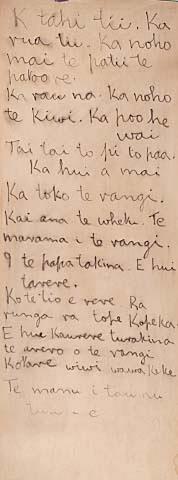 K tahi tii. Ka
rua tii. Ka noho
mai te patii te
patoo re.
Ka rau na. Ka noho
te kiwi. Ka poo he
wai
Tai tai to pi to paa.
Ka hui a mai
Ka toko te rangi.
Kai ana te wheku. Te
marama i te rangi.
I te papa takina. E hui
tarere.
Ko te tio e rere. Ra
runga ra tope Kopeka.
E hue Kaurere turakina
te arero o te rangi
Kotare wiwi wawa keke
Te manu i tau nu